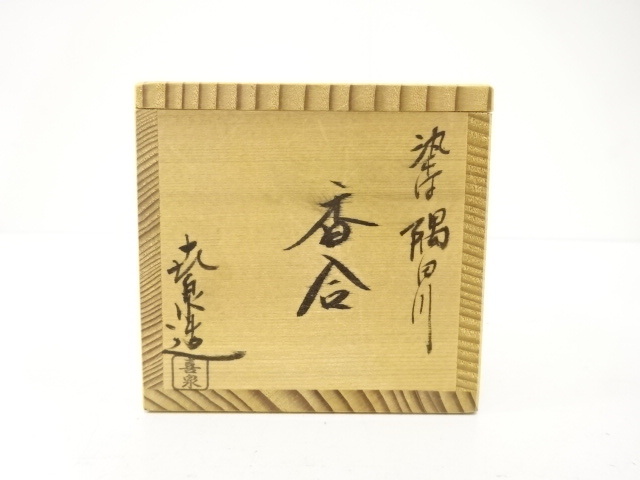 染付 隅田川
香合
喜泉造
喜泉